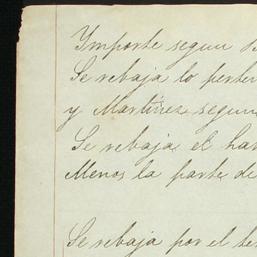 Ymporte segun
Se rebaja lo perten
y Martinez segun
Se rebaja el ha
Menos la parte de
Se rebaja por el te